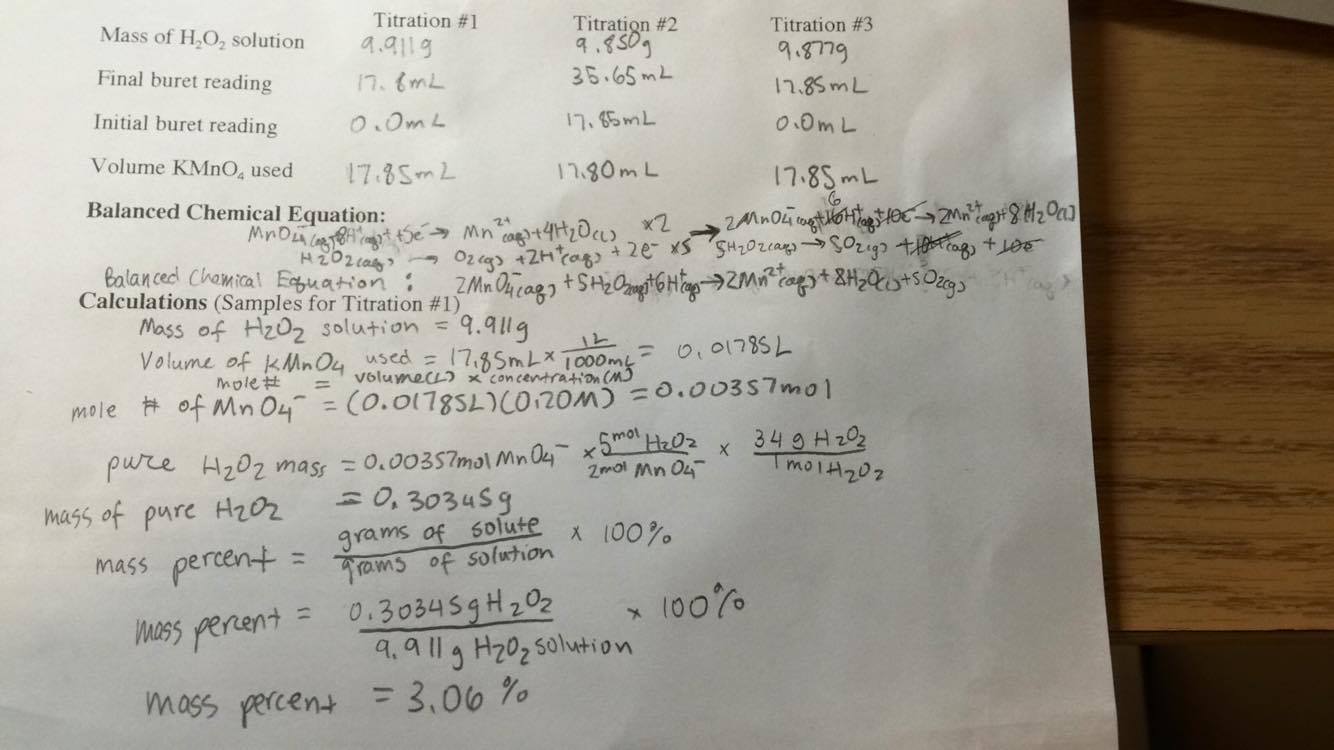 Titration #1 Titration #2 Titration #3
Mass of H₂O₂ solution 9.911g 9.850g 9.877g
Final buret reading 17.8mL 35.65mL 17.85mL
Initial buret reading 0.0mL 17.85mL 0.0mL
Volume KMnO₄ used 17.85mL 17.80mL 17.85mL
Balanced Chemical Equation:
MnO₄⁻(aq)+8H⁺(aq)+5e⁻→ Mn²⁺(aq)+4H₂O(l) ×2 → 2MnO₄⁻(aq)+16H⁺(aq)+10e⁻→2Mn²⁺(aq)+8H₂O(l)
H₂O₂(aq) → O₂(g) +2H⁺(aq) +2e⁻ ×5 5H₂O₂(aq)→5O₂(g)+10H⁺(aq)+10e⁻
Balanced Chemical Equation: 2MnO₄⁻(aq)+5H₂O₂(aq)+6H⁺(aq)→2Mn²⁺(aq)+8H₂O(l)+5O₂(g)
Calculations (Samples for Titration #1)
Mass of H₂O₂ solution = 9.911g
Volume of KMnO₄ used = 17.85mL × 1L/1000mL = 0.01785L
mole # = volume(L) × concentration(M)
mole # of MnO₄⁻ = (0.01785L)(0.20M) = 0.00357mol
pure H₂O₂ mass = 0.00357mol MnO₄⁻ × 5mol H₂O₂/2mol MnO₄⁻ × 34g H₂O₂/1mol H₂O₂
mass of pure H₂O₂ = 0.30345g
mass percent = grams of solute/grams of solution × 100%
mass percent = 0.30345g H₂O₂/9.911g H₂O₂ solution × 100%
mass percent = 3.06%